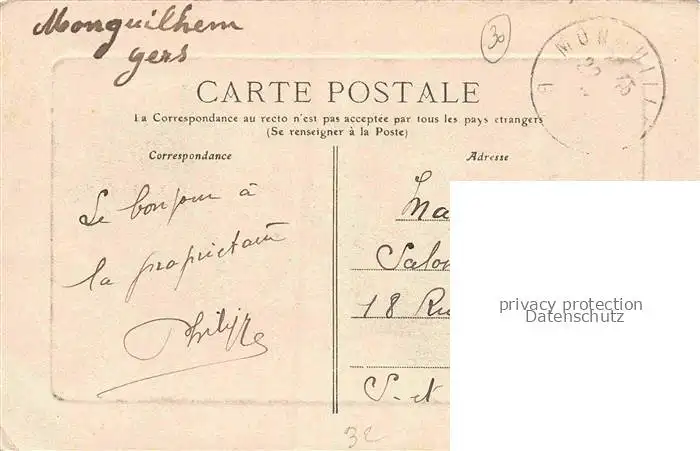 Monguilhem
gers
30
MONGUILH
CARTE POSTALE
La Correspondance au recto n'est pas acceptée par tous les pays étrangers
(Se renseigner à la Poste)
Correspondance
Adresse
Le bonjour à
la propriétaire
Philippe
Ma
Salon
18 Ru
S-et
privacy protection
Datenschutz
3E